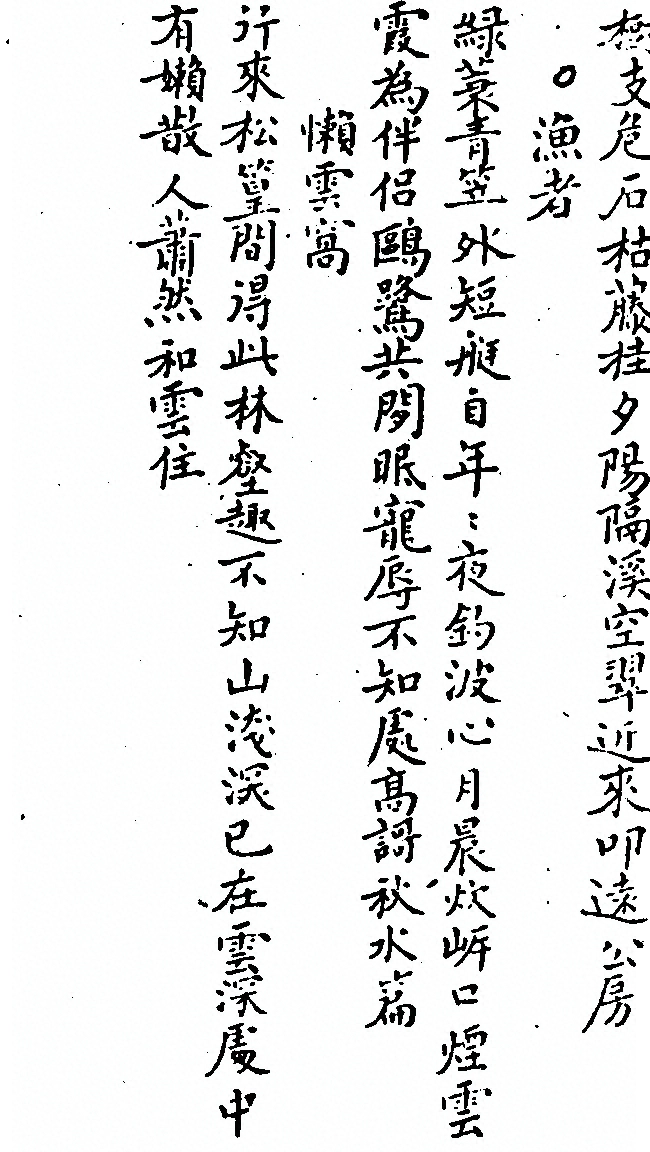 支危石枯藤挂夕陽隔溪空翠近來叩遠公房
○漁者
綠蓑青笠外短艇自年〻夜釣波心月晨炊岍口煙雲
霞為伴侶鷗鷺共閒眠寵辱不知處高謌秋水篇
懶雲窩
行來松篁間得此林壑趣不知山淺深已在雲深處中
有嬾散人蕭然和雲住